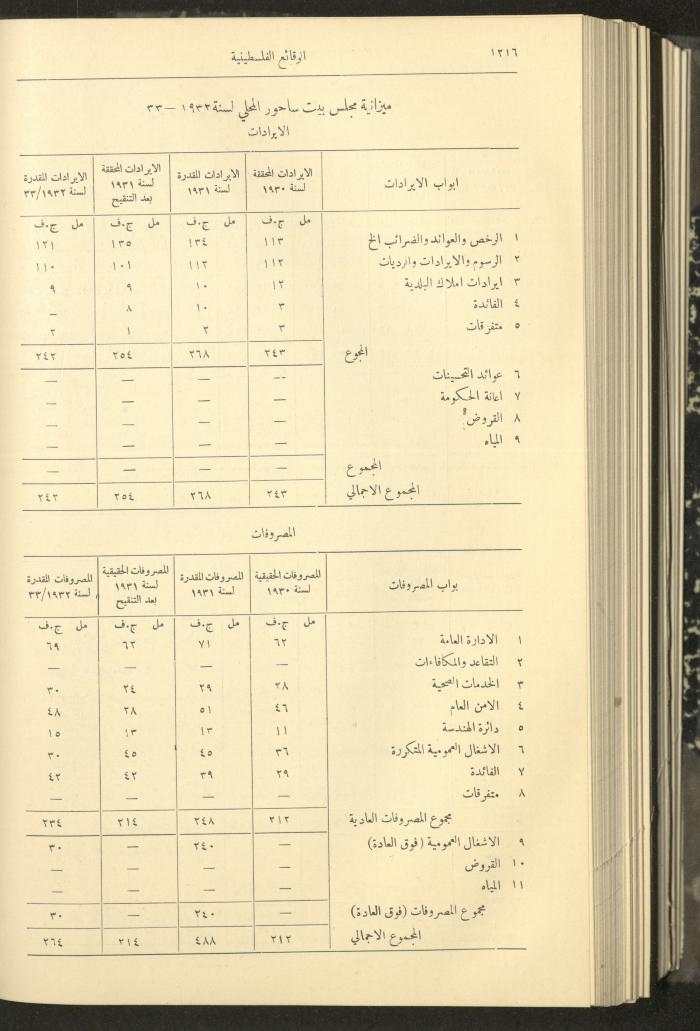 ١٢١٦ الوقائع الفلسطينية
ميزانية مجلس بيت ساحور المحلي لسنة ١٩٣٢ — ٣٣
الايرادات
ابواب الايرادات | الايرادات المحققة لسنة ١٩٣٠ | الايرادات المقدرة لسنة ١٩٣١ | الايرادات المحققة لسنة ١٩٣١ بعد التنقيح | الايرادات المقدرة لسنة ٣٣/١٩٣٢
مل ج.ف | مل ج.ف | مل ج.ف | مل ج.ف
١ الرخص والعوائد والضرائب الخ | ١١٣ | ١٣٤ | ١٣٥ | ١٢١
٢ الرسوم والايرادات والرديات | ١١٢ | ١١٢ | ١٠١ | ١١٠
٣ ايرادات املاك البلدية | ١٢ | ١٠ | ٩ | ٩
٤ الفائدة | ٣ | ١٠ | ٨ | —
٥ متفرقات | ٣ | ٢ | ١ | ٢
المجموع | ٢٤٣ | ٢٦٨ | ٢٥٤ | ٢٤٢
٦ عوائد التحسينات | — | — | — | —
٧ اعانة الحكومة | — | — | — | —
٨ القروض | — | — | — | —
٩ المياه | — | — | — | —
المجموع | — | — | — | —
المجموع الاجمالي | ٢٤٣ | ٢٦٨ | ٢٥٤ | ٢٤٢
المصروفات
بواب المصروفات | المصروفات الحقيقية لسنة ١٩٣٠ | المصروفات المقدرة لسنة ١٩٣١ | المصروفات الحقيقية لسنة ١٩٣١ بعد التنقيح | المصروفات المقدرة لسنة ٣٣/١٩٣٢
مل ج.ف | مل ج.ف | مل ج.ف | مل ج.ف
١ الادارة العامة | ٦٢ | ٧١ | ٦٢ | ٦٩
٢ التقاعد والمكافاءات | — | — | — | —
٣ الخدمات الصحية | ٢٨ | ٢٩ | ٢٤ | ٣٠
٤ الامن العام | ٤٦ | ٥١ | ٢٨ | ٤٨
٥ دائرة الهندسة | ١١ | ١٣ | ١٣ | ١٥
٦ الاشغال العمومية المتكررة | ٣٦ | ٤٥ | ٤٥ | ٣٠
٧ الفائدة | ٢٩ | ٣٩ | ٤٢ | ٤٢
٨ متفرقات | — | — | — | —
مجموع المصروفات العادية | ٢١٢ | ٢٤٨ | ٢١٤ | ٢٣٤
٩ الاشغال العمومية (فوق العادة) | — | ٢٤٠ | — | ٣٠
١٠ القروض | — | — | — | —
١١ المياه | — | — | — | —
مجموع المصروفات (فوق العادة) | — | ٢٤٠ | — | ٣٠
المجموع الاجمالي | ٢١٢ | ٤٨٨ | ٢١٤ | ٢٦٤